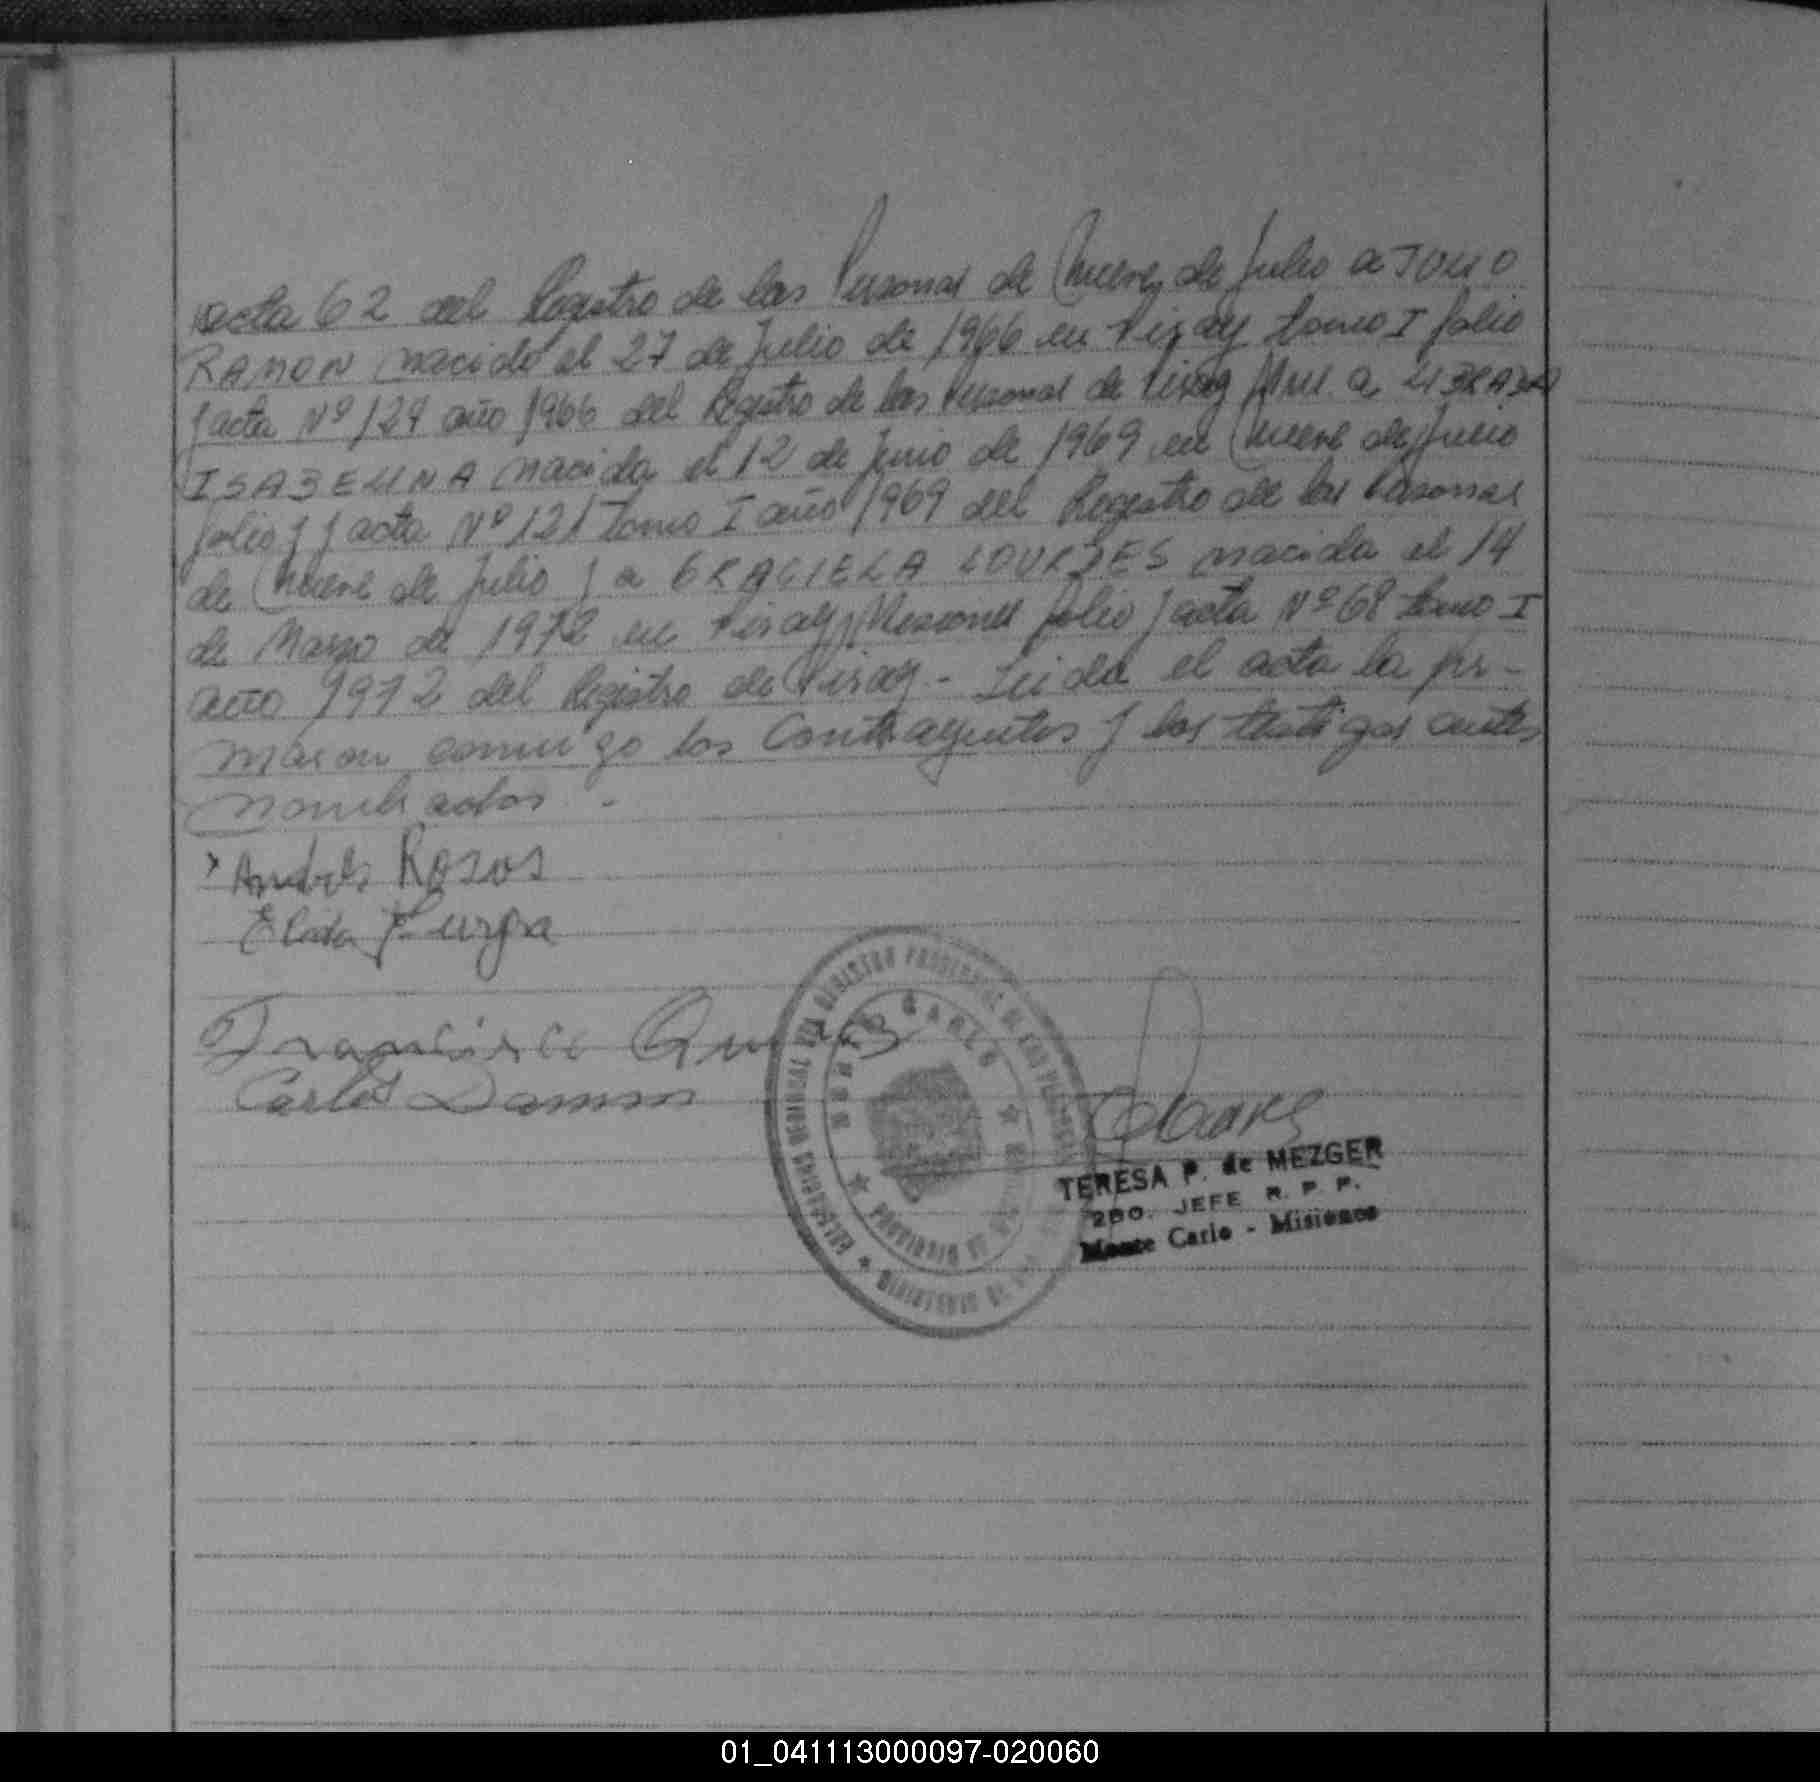 acta 62 del Registro de las Personas de Nueve de Julio a JULIO
RAMON nacido el 27 de Julio de 1966 en Piray tomo I folio
y acta Nº 124 año 1966 del Registro de las Personas de Piray Mnes. a LIBRADA
ISABELINA nacida el 12 de Junio de 1969 en Nueve de Julio
folio y acta Nº 121 tomo I año 1969 del Registro de las Personas
de Nueve de Julio y a GRACIELA LOURDES nacida el 14
de Marzo de 1972 en Piray, Misiones folio y acta Nº 68 tomo I
año 1972 del Registro de Piray - Leida el acta la fir-
maron conmigo los Contrayentes y los testigos antes
nombrados -
Andrés Rosos
Elida
Francisco
Carlos
MONTE CARLO
PROVINCIA DE MISIONES
TERESA P. de MEZGER
2DO. JEFE R. P. P.
Monte Carlo - Misiones
01_041113000097-020060